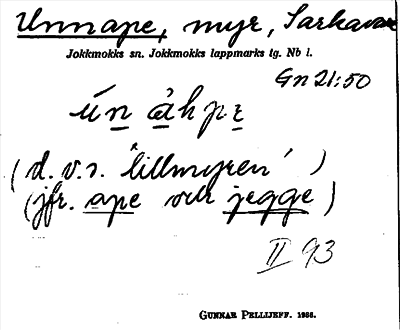 Unnape, myr, Sarkavare
Jokkmokks sn. Jokkmokks lappmarks tg. Nb l.
Gn 21:50
ún ȧhpe
(d.v.s. 'lillmyren')
(jfr. ape och jegge)
II 93
GUNNAR PELLIJEFF. 1956.